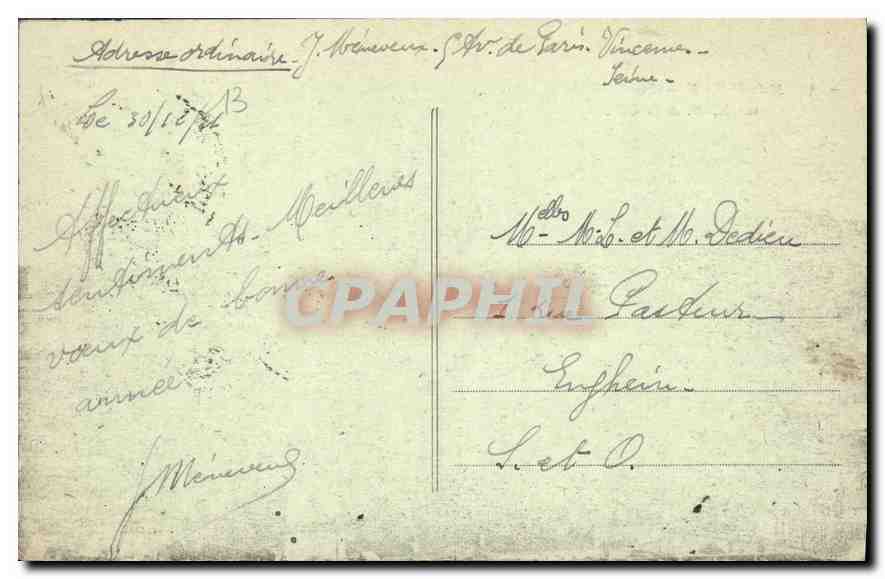 Adresse ordinaire. J. Méneveux. 5 Av. de Paris. Vincennes.
Seine.
Le 30/12/
13
Affectueux
sentiments. Meilleurs
vœux de bonne
année
J Méneveux
Melles M.L. et M. Dedieu
rue Pasteur
Enghein.
S. et O.
CPAPHIL